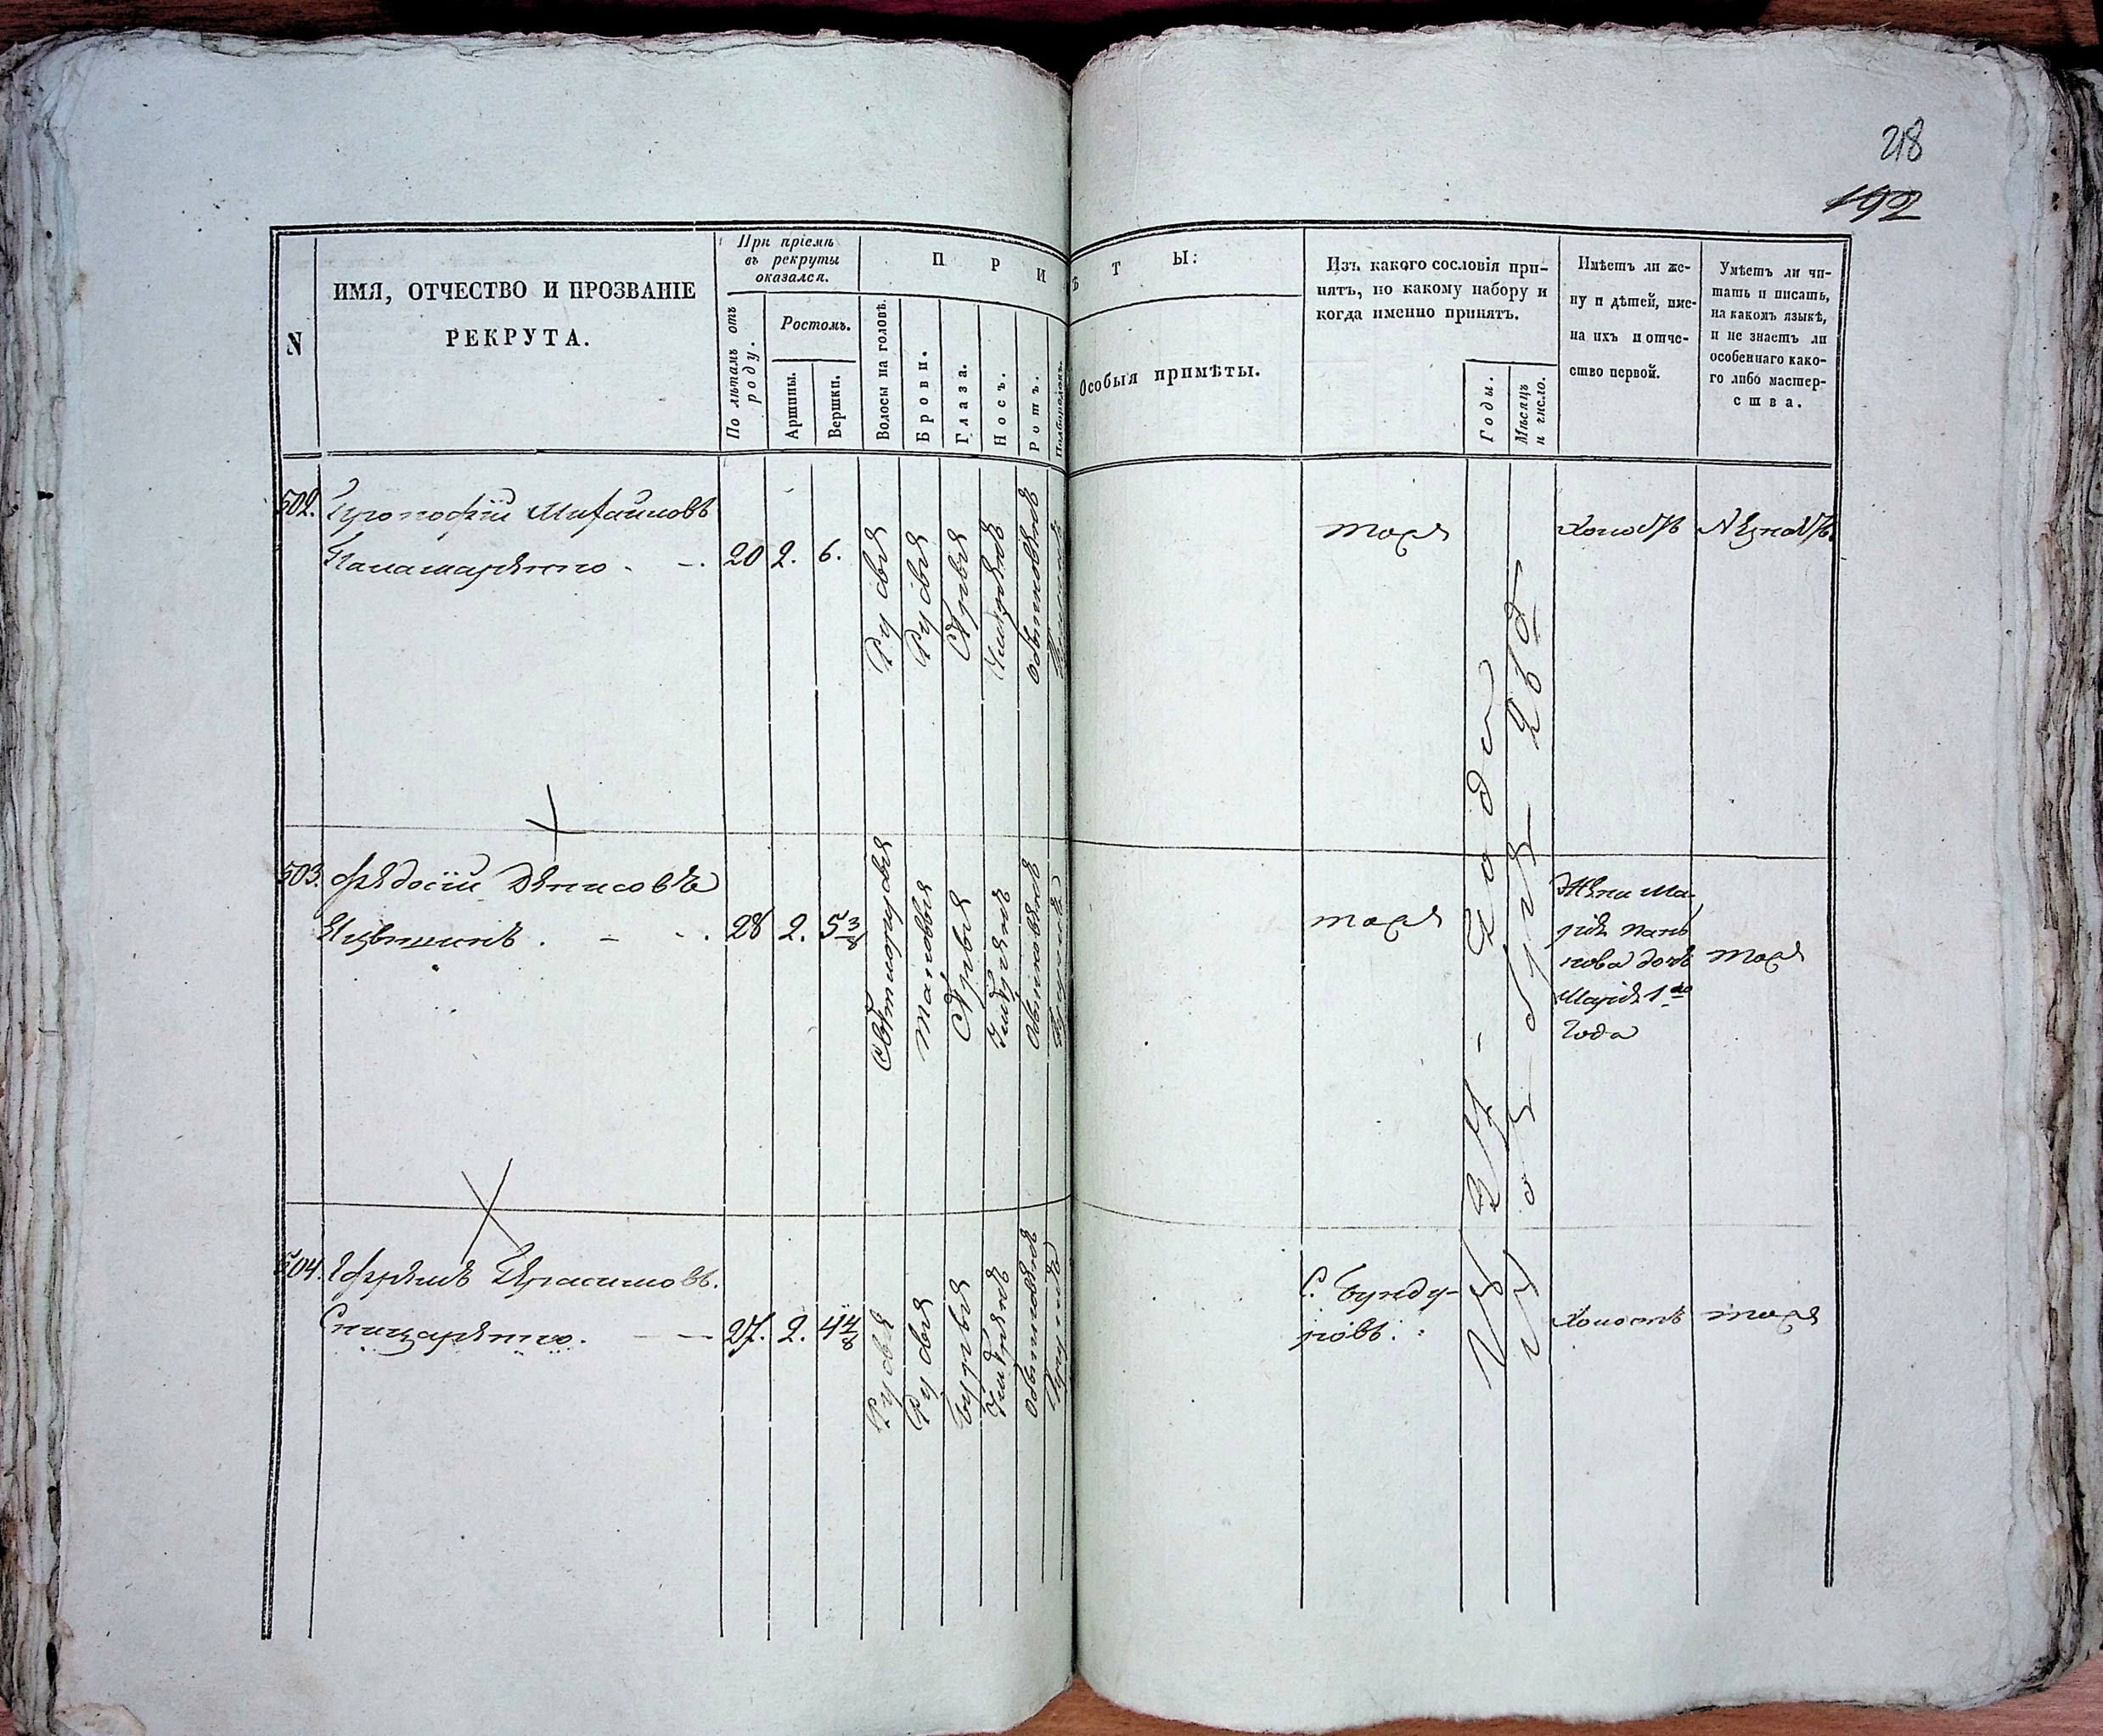 218
192
N
ИМЯ, ОТЧЕСТВО И ПРОЗВАНІЕ
РЕКРУТА.
При пріемѣ
въ рекруты
оказался.
По лѣтамъ отъ
роду.
Ростомъ.
Аршины.
Вершки.
П Р И
Ѣ Т Ы:
Волосы на головѣ.
Брови.
Глаза.
Носъ.
Ротъ.
Подбородокъ.
Особыя примѣты.
Изъ какого сословія при-
нятъ, по какому набору и
когда именно принятъ.
Годы.
Мѣсяцъ
и число.
Имѣетъ ли же-
ну и дѣтей, име-
на ихъ и отче-
ство первой.
Умѣетъ ли чи-
тать и писать,
на какомъ языкѣ,
и не знаетъ ли
особеннаго како-
го либо мастер-
ства.
502. Прокофій Михайловъ
Паламаренко 20 2. 6.
Русыя
Русыя
Сѣрыя
Умѣренъ
обыкновенъ
тоже
Холостъ
Незнаетъ.
503. Федосій Денисовъ
28 2. 5 3/8
Свѣтлорусыя
Таковыя
Сѣрыя
Умѣренъ
Обыкновенъ
тоже
Жена Ма-
рія
дочь
Марія 1го
года
тоже
504. Ефремъ Герасимовъ.
Слицаренко. 27. 2. 4 4/8
Русыя
Русыя
Бурыя
Умѣренъ
обыкновенъ
С.
Холостъ
тоже
году
2го